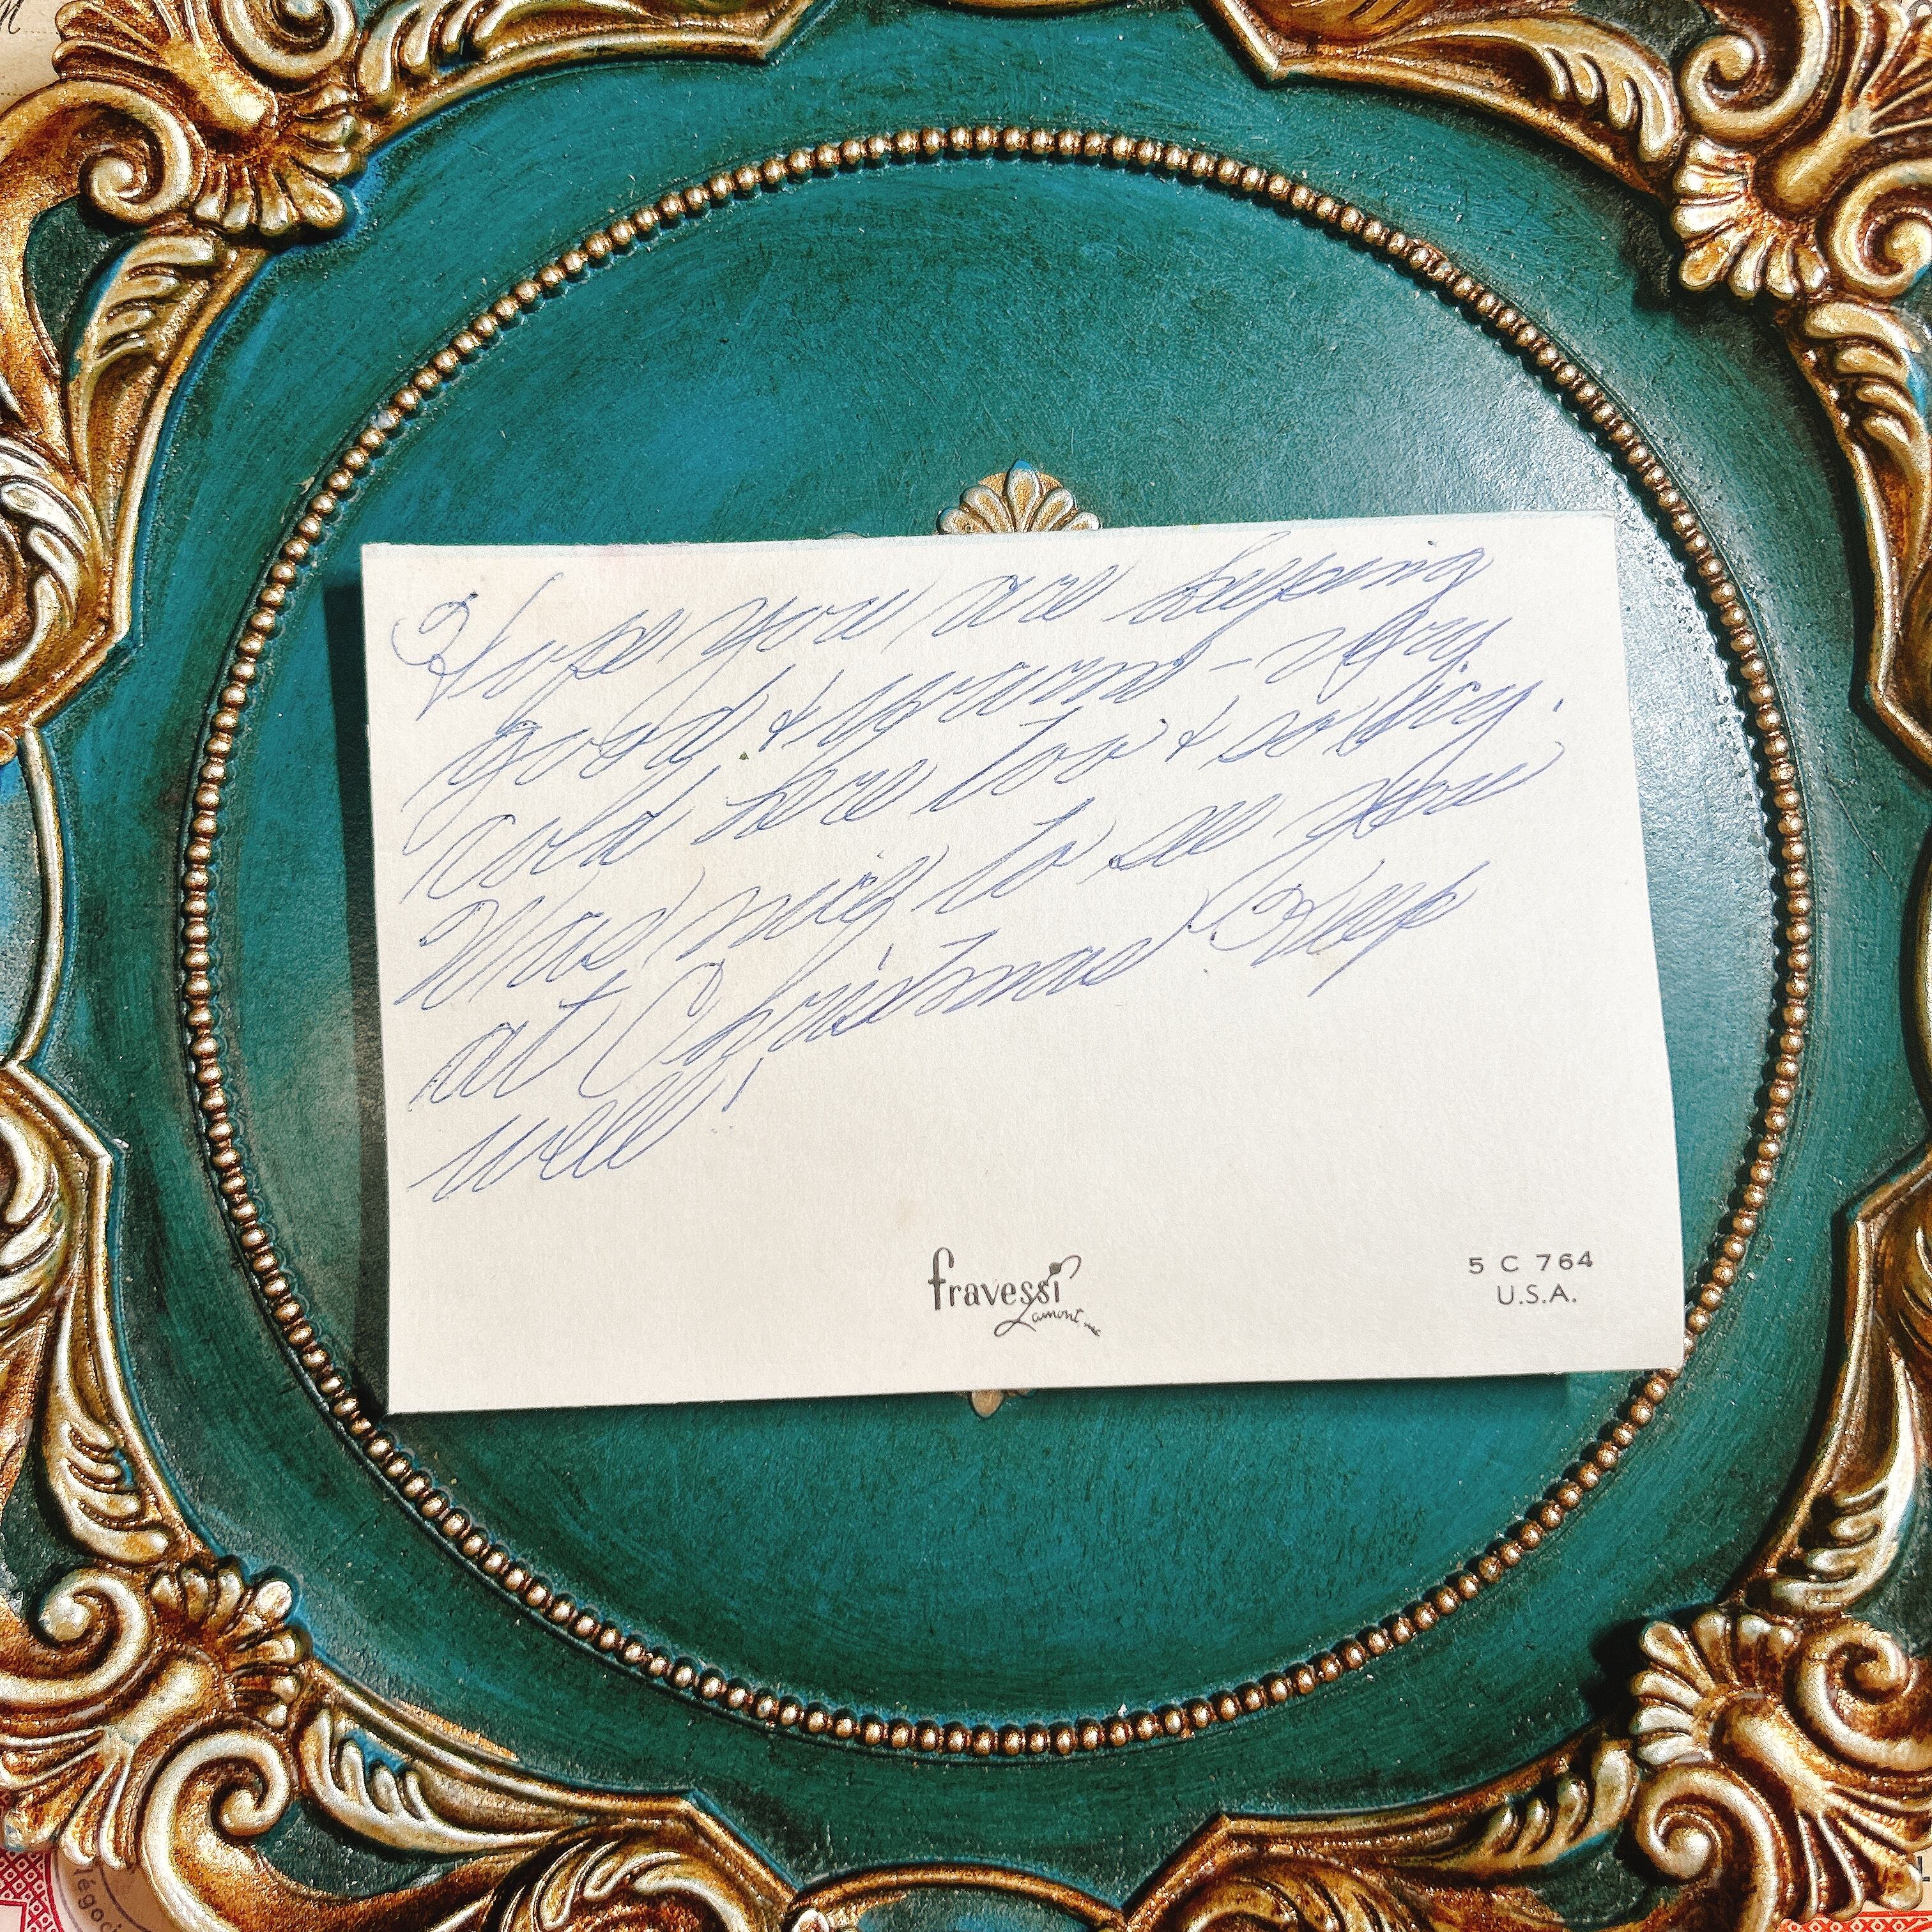 Hope you are keeping
good & warm - very
cold here too & so icy.
Was nice to see you
at Christmas. Keep
well!
fravessi
Lamont, inc
5 C 764
U.S.A.
M
légoci